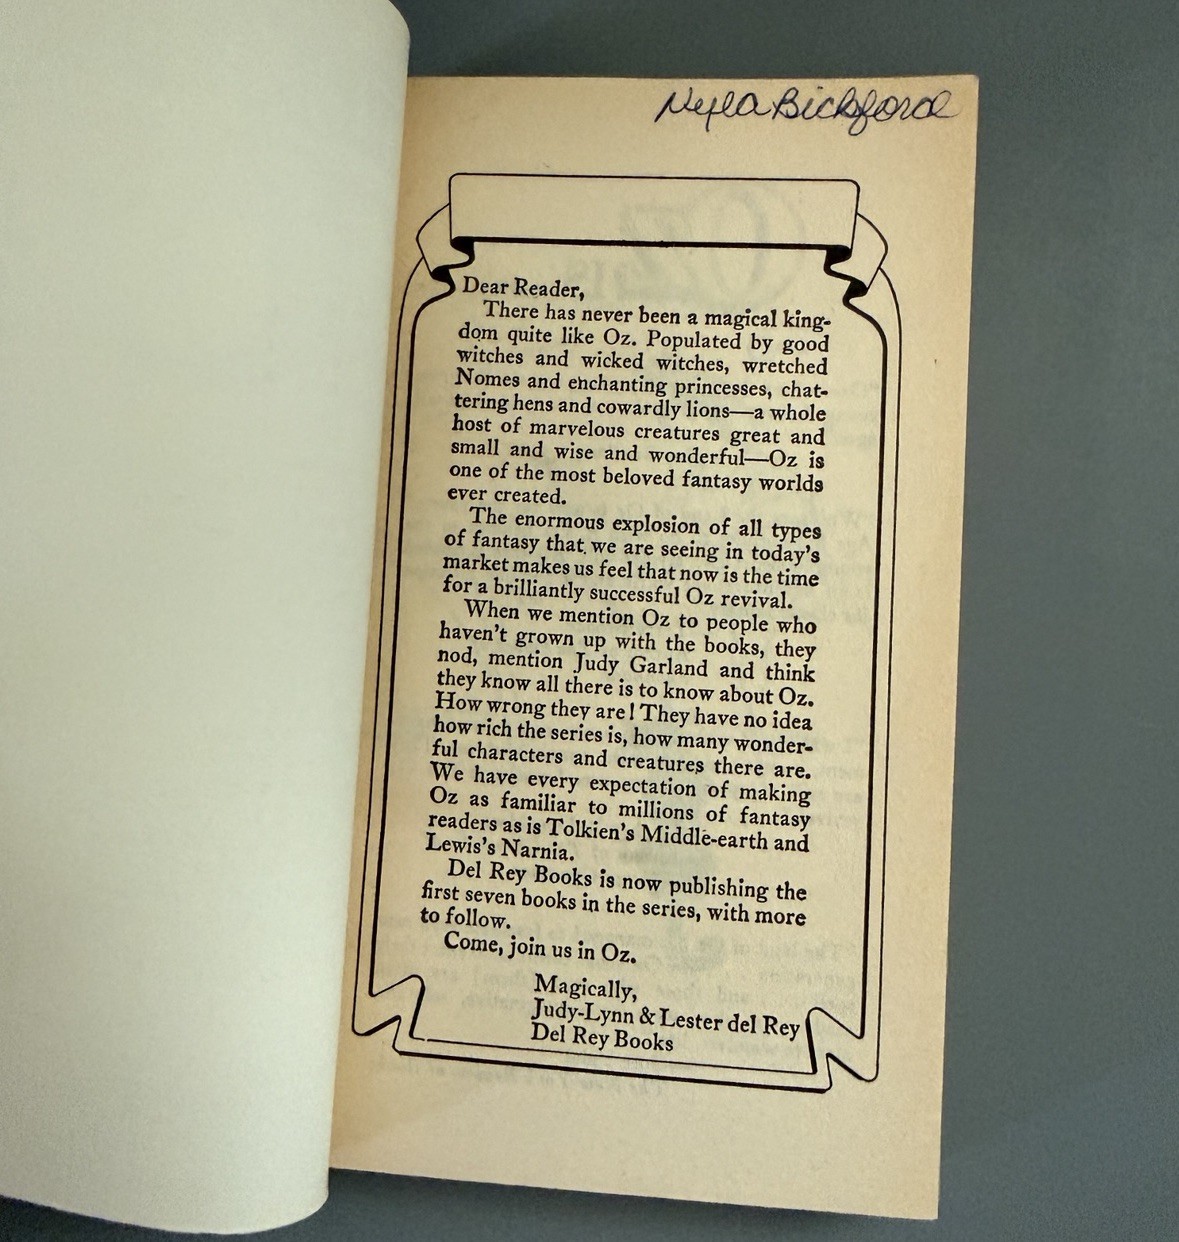 Nyla Bickford
Dear Reader,
There has never been a magical king-
dom quite like Oz. Populated by good
witches and wicked witches, wretched
Nomes and enchanting princesses, chat-
tering hens and cowardly lions—a whole
host of marvelous creatures great and
small and wise and wonderful—Oz is
one of the most beloved fantasy worlds
ever created.
The enormous explosion of all types
of fantasy that we are seeing in today's
market makes us feel that now is the time
for a brilliantly successful Oz revival.
When we mention Oz to people who
haven't grown up with the books, they
nod, mention Judy Garland and think
they know all there is to know about Oz.
How wrong they are! They have no idea
how rich the series is, how many wonder-
ful characters and creatures there are.
We have every expectation of making
Oz as familiar to millions of fantasy
readers as is Tolkien's Middle-earth and
Lewis's Narnia.
Del Rey Books is now publishing the
first seven books in the series, with more
to follow.
Come, join us in Oz.
Magically,
Judy-Lynn & Lester del Rey
Del Rey Books